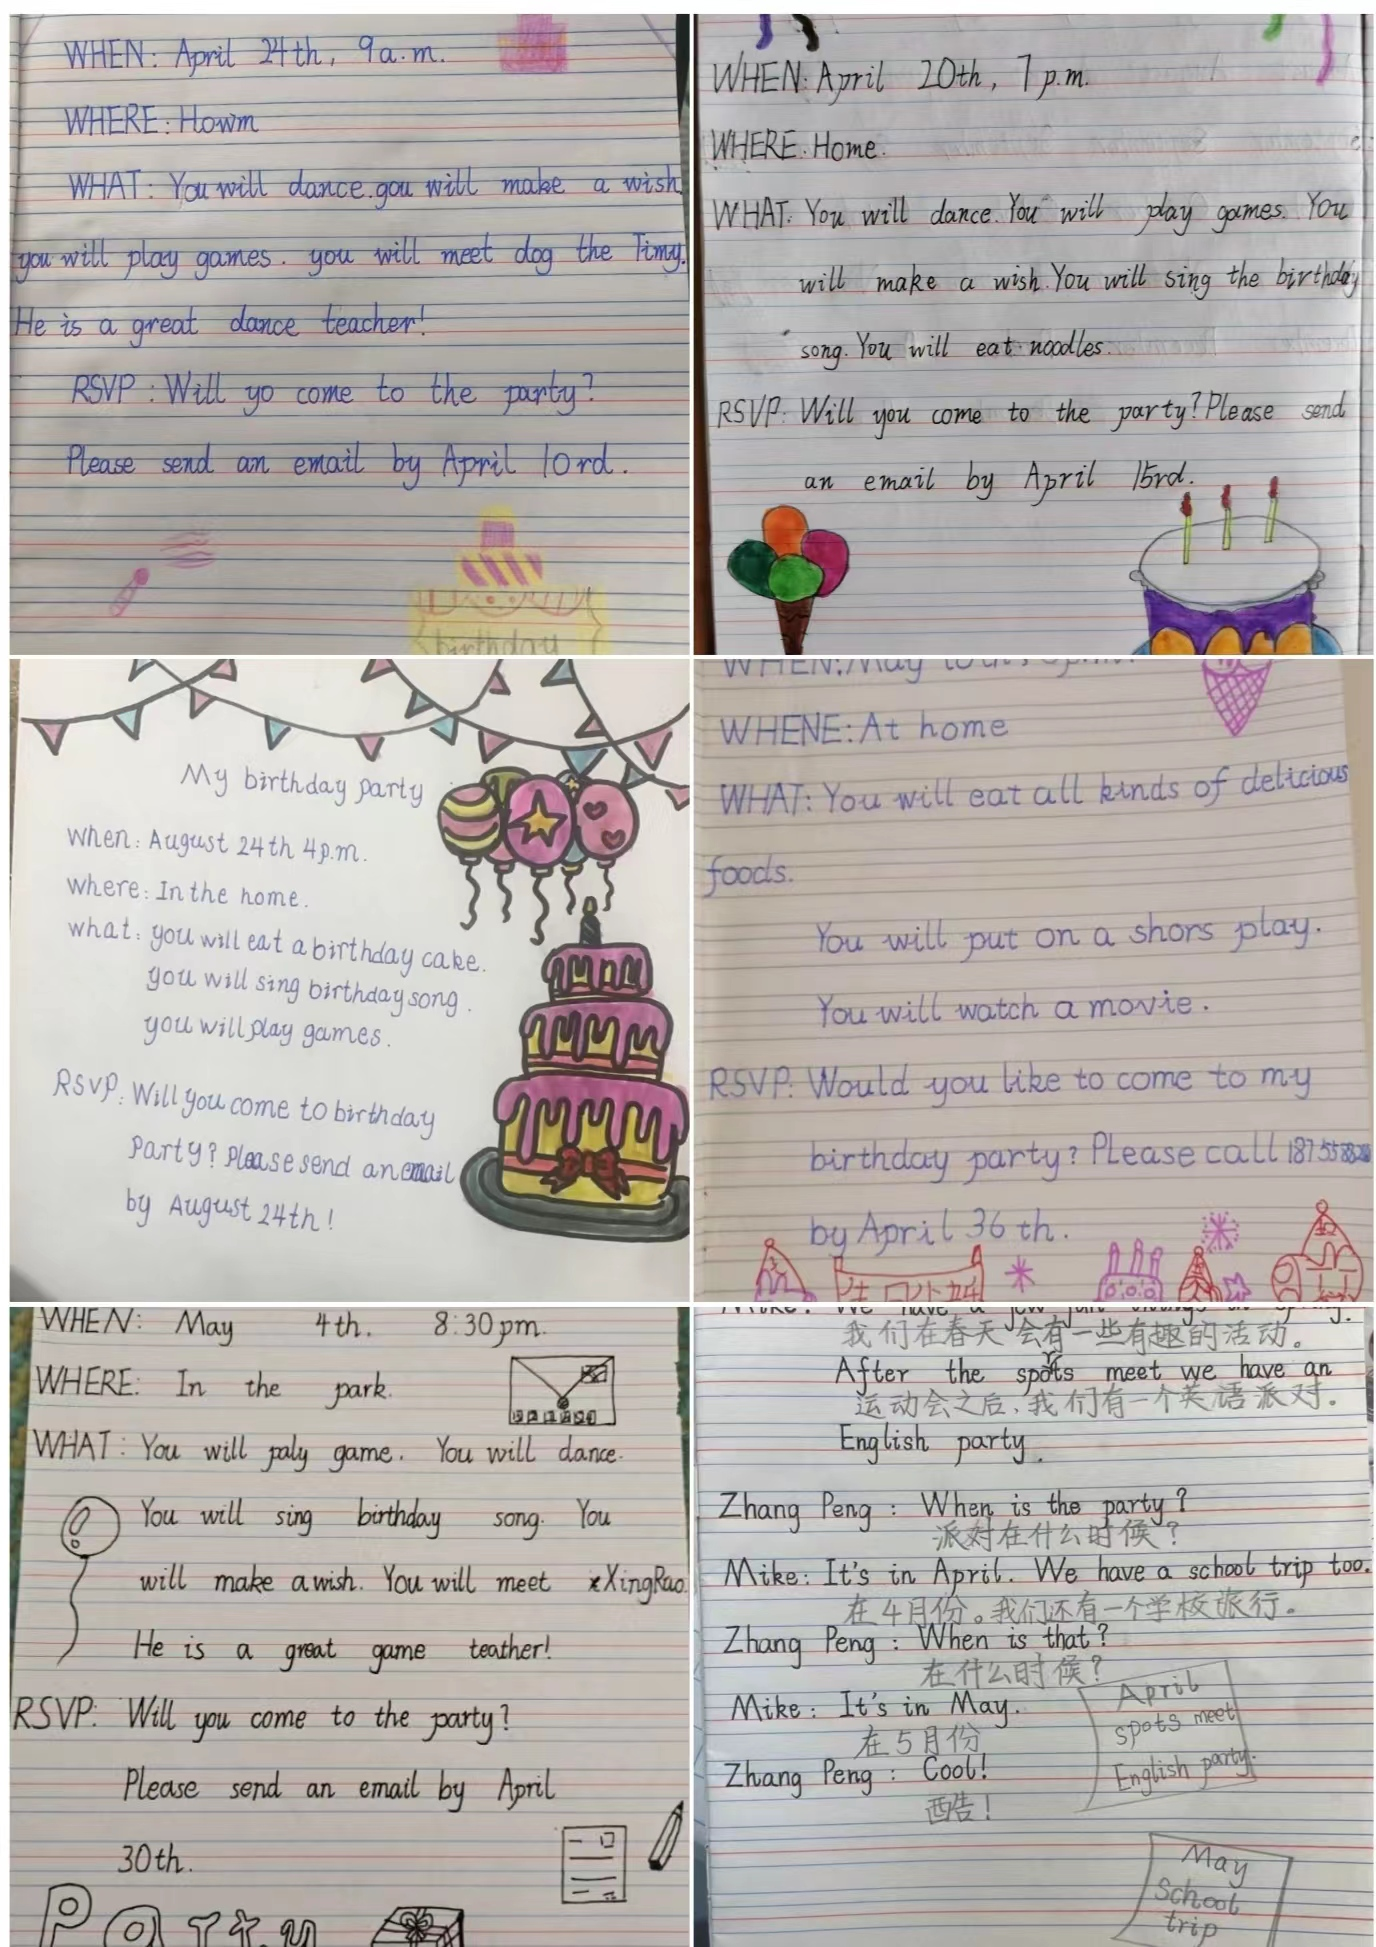 WHEN: April 24th, 9a.m.
WHERE: Howm
WHAT: You will dance. gou will make a wish
you will play games. you will meet dog the Timy.
He is a great dance teacher!
RSVP: Will yo come to the party?
Please send an email by April 10rd.
birthday
WHEN: April 20th, 7 p.m.
WHERE: Home.
WHAT: You will dance. You will play games. You
will make a wish. You will sing the birthday
song. You will eat noodles.
RSVP: Will you come to the party? Please send
an email by April 15rd.
My birthday party
when: August 24th 4p.m.
where: In the home.
what: you will eat a birthday cake.
you will sing birthday song.
you will play games.
RSVP: Will you come to birthday
Party? Please send an email
by August 24th!
WHEN: May
WHENE: At home
WHAT: You will eat all kinds of delicious
foods.
You will put on a shors play.
You will watch a movie.
RSVP: Would you like to come to my
birthday party? Please call
by April 36 th.
WHEN: May 4th. 8:30pm.
WHERE: In the park.
WHAT: You will paly game. You will dance.
You will sing birthday song. You
will make a wish. You will meet XingRao.
He is a great game teather!
RSVP: Will you come to the party?
Please send an email by April
30th.
Party
Mike: We have a few fun things in spring.
我们在春天会有一些有趣的活动。
After the sports meet we have an
运动会之后,我们有一个英语派对。
English party.
Zhang Peng: When is the party?
派对在什么时候?
Mike: It's in April. We have a school trip too.
在4月份。我们还有一个学校旅行。
Zhang Peng: When is that?
在什么时候?
Mike: It's in May.
在5月份
Zhang Peng: Cool!
酷!
April
spots meet
English party.
May
School
trip